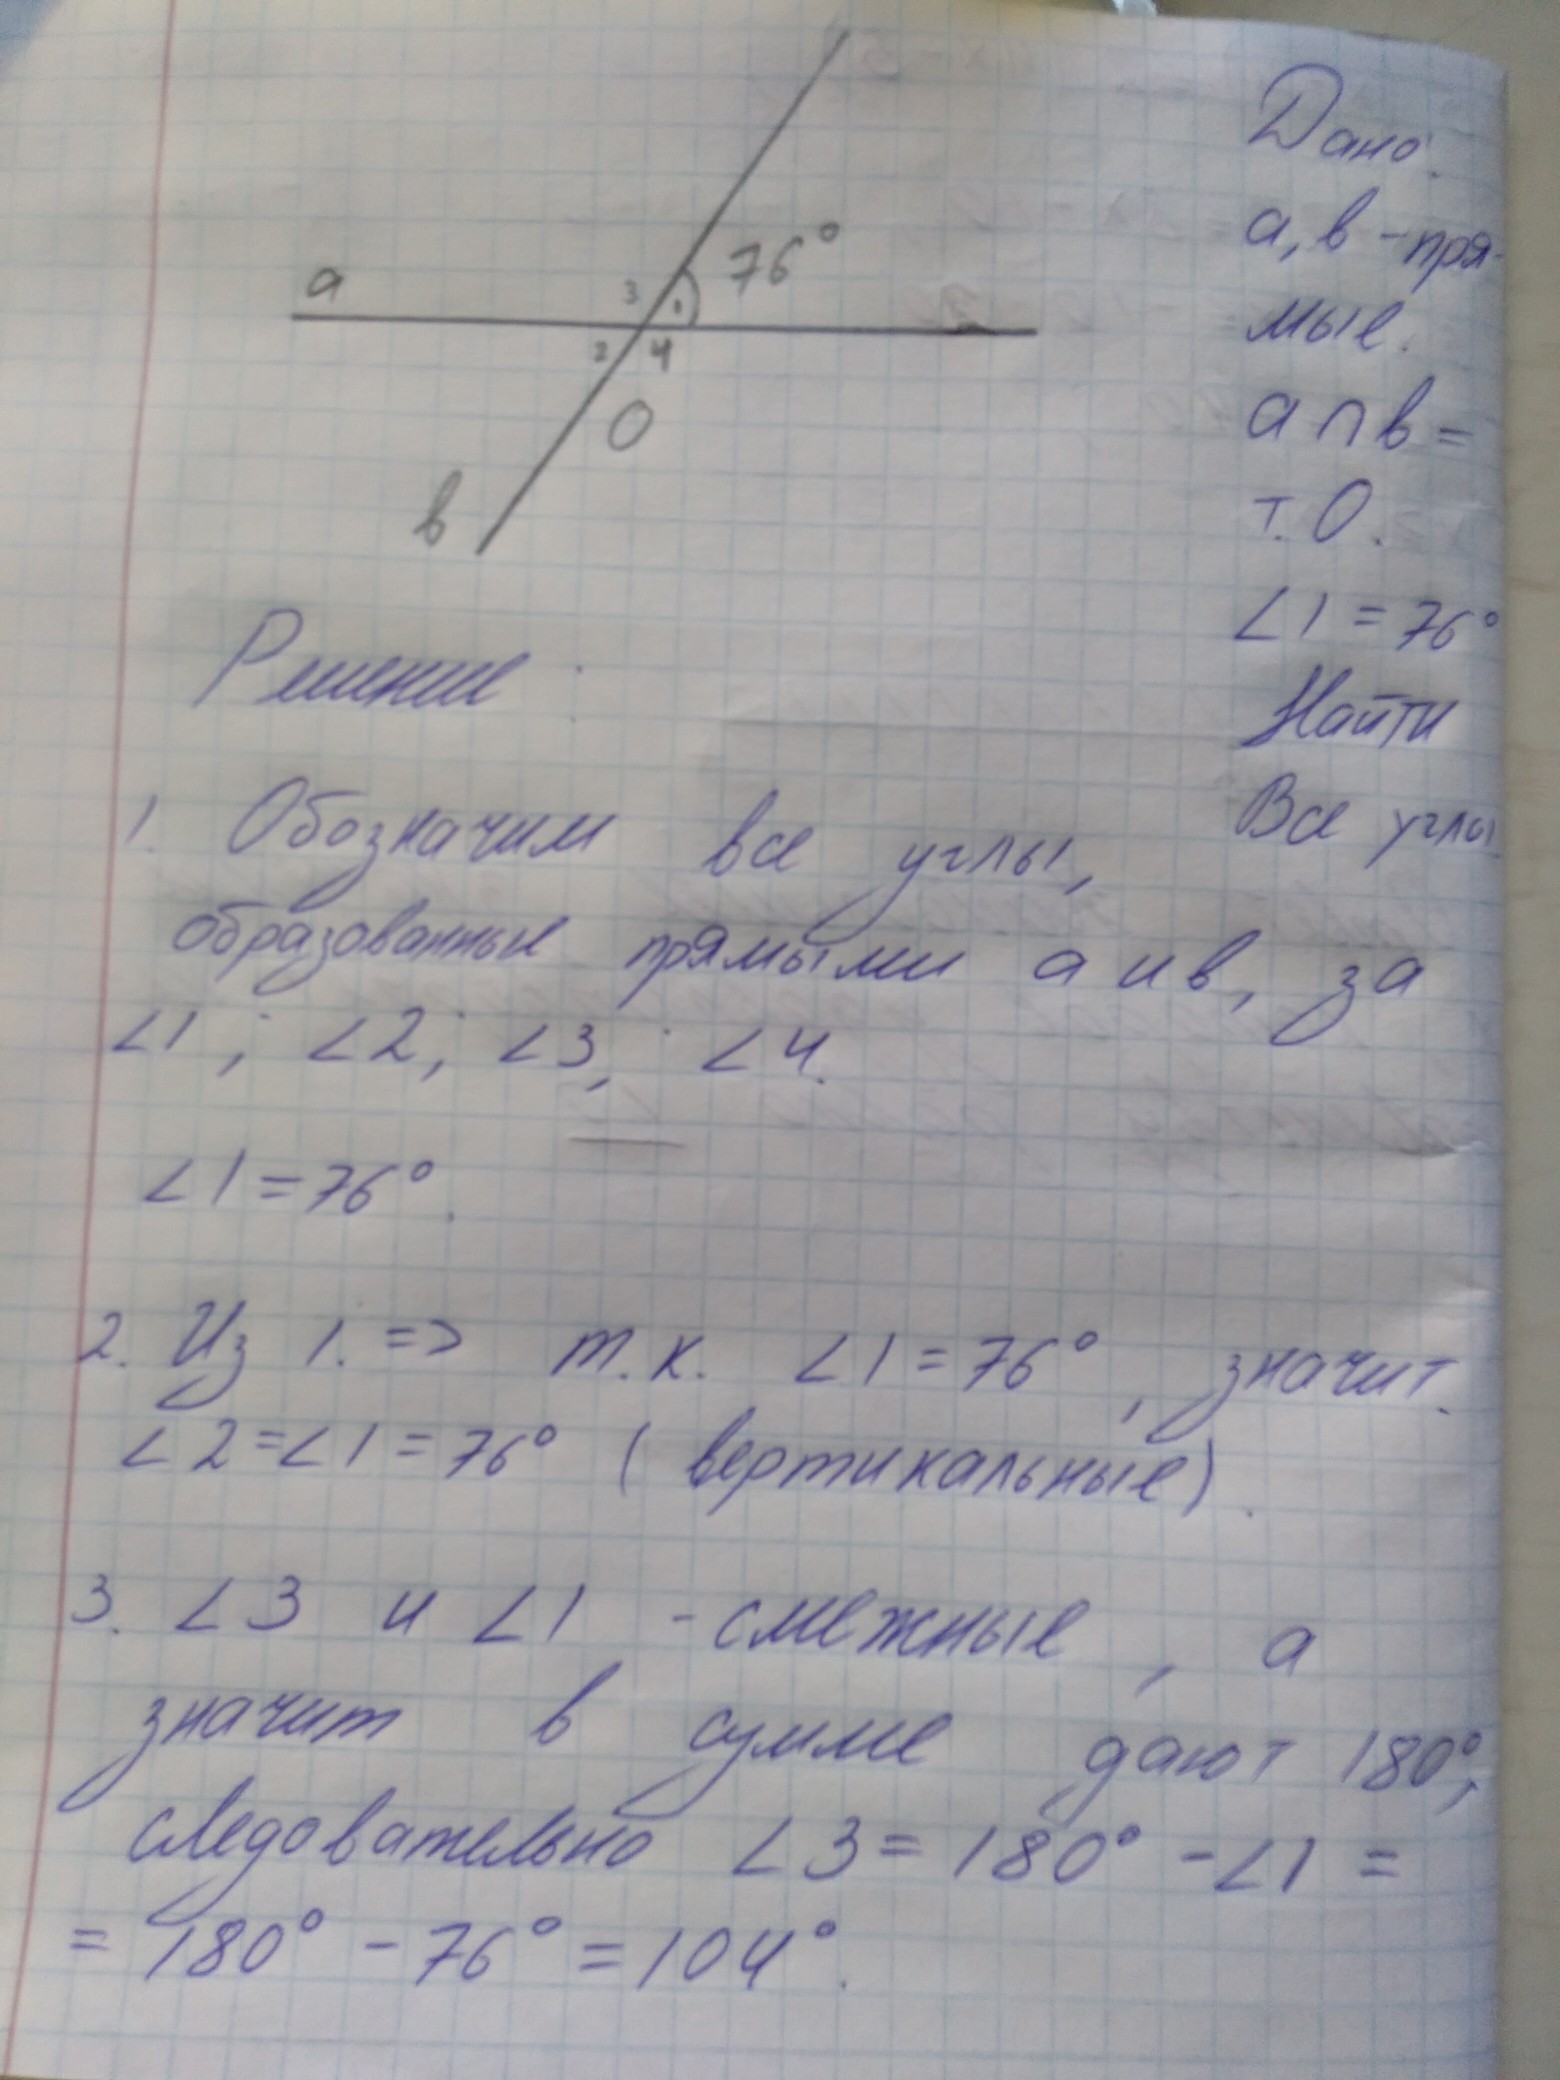 76°
a
3
1
2
4
О
в
Дано:
а, в - пря-
мые.
а ∩ в =
т. О.
∠1 = 76°
Найти
Все углы
Решение:
1. Обозначим все углы,
образованные прямыми а и в, за
∠1; ∠2; ∠3; ∠4.
∠1 = 76°.
2. Из 1. => т.к. ∠1 = 76°, значит
∠2 = ∠1 = 76° (вертикальные).
3. ∠3 и ∠1 - смежные, а
значит в сумме дают 180°,
следовательно ∠3 = 180° - ∠1 =
= 180° - 76° = 104°.